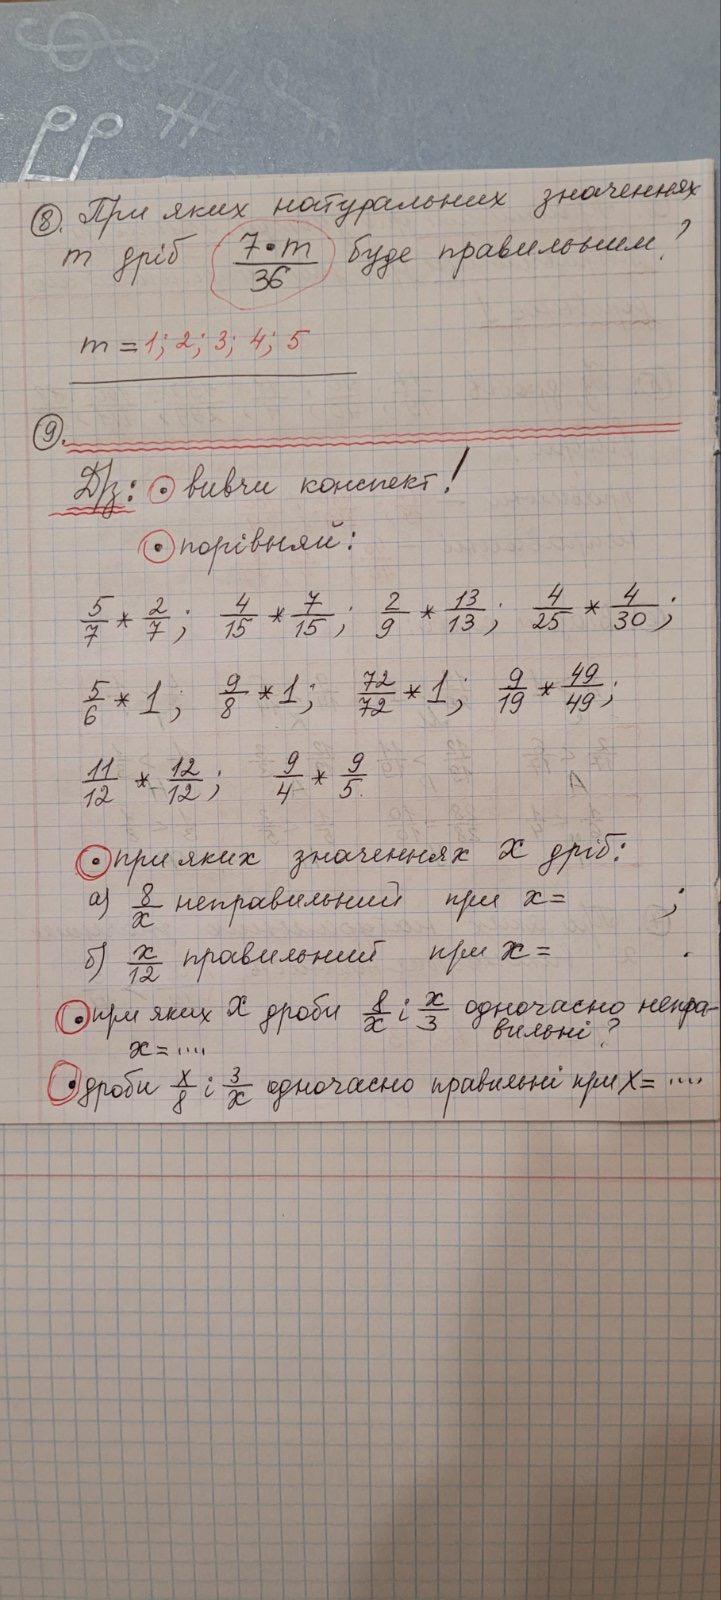 8. При яких натуральних значеннях
m дріб 7•m/36 буде правильним?
m = 1; 2; 3; 4; 5
9.
Д/з: • вивчи конспект!
• порівняй:
5/7 * 2/7; 4/15 * 7/15; 2/9 * 13/13; 4/25 * 4/30;
5/6 * 1; 9/8 * 1; 72/72 * 1; 9/19 * 49/49;
11/12 * 12/12; 9/4 * 9/5.
• при яких значеннях x дріб:
а) 8/x неправильний при x = ;
б) x/12 правильний при x = .
• при яких x дроби 8/x і x/3 одночасно непра-
вильні?
x = ....
• дроби x/8 і 3/x одночасно правильні при x = ....